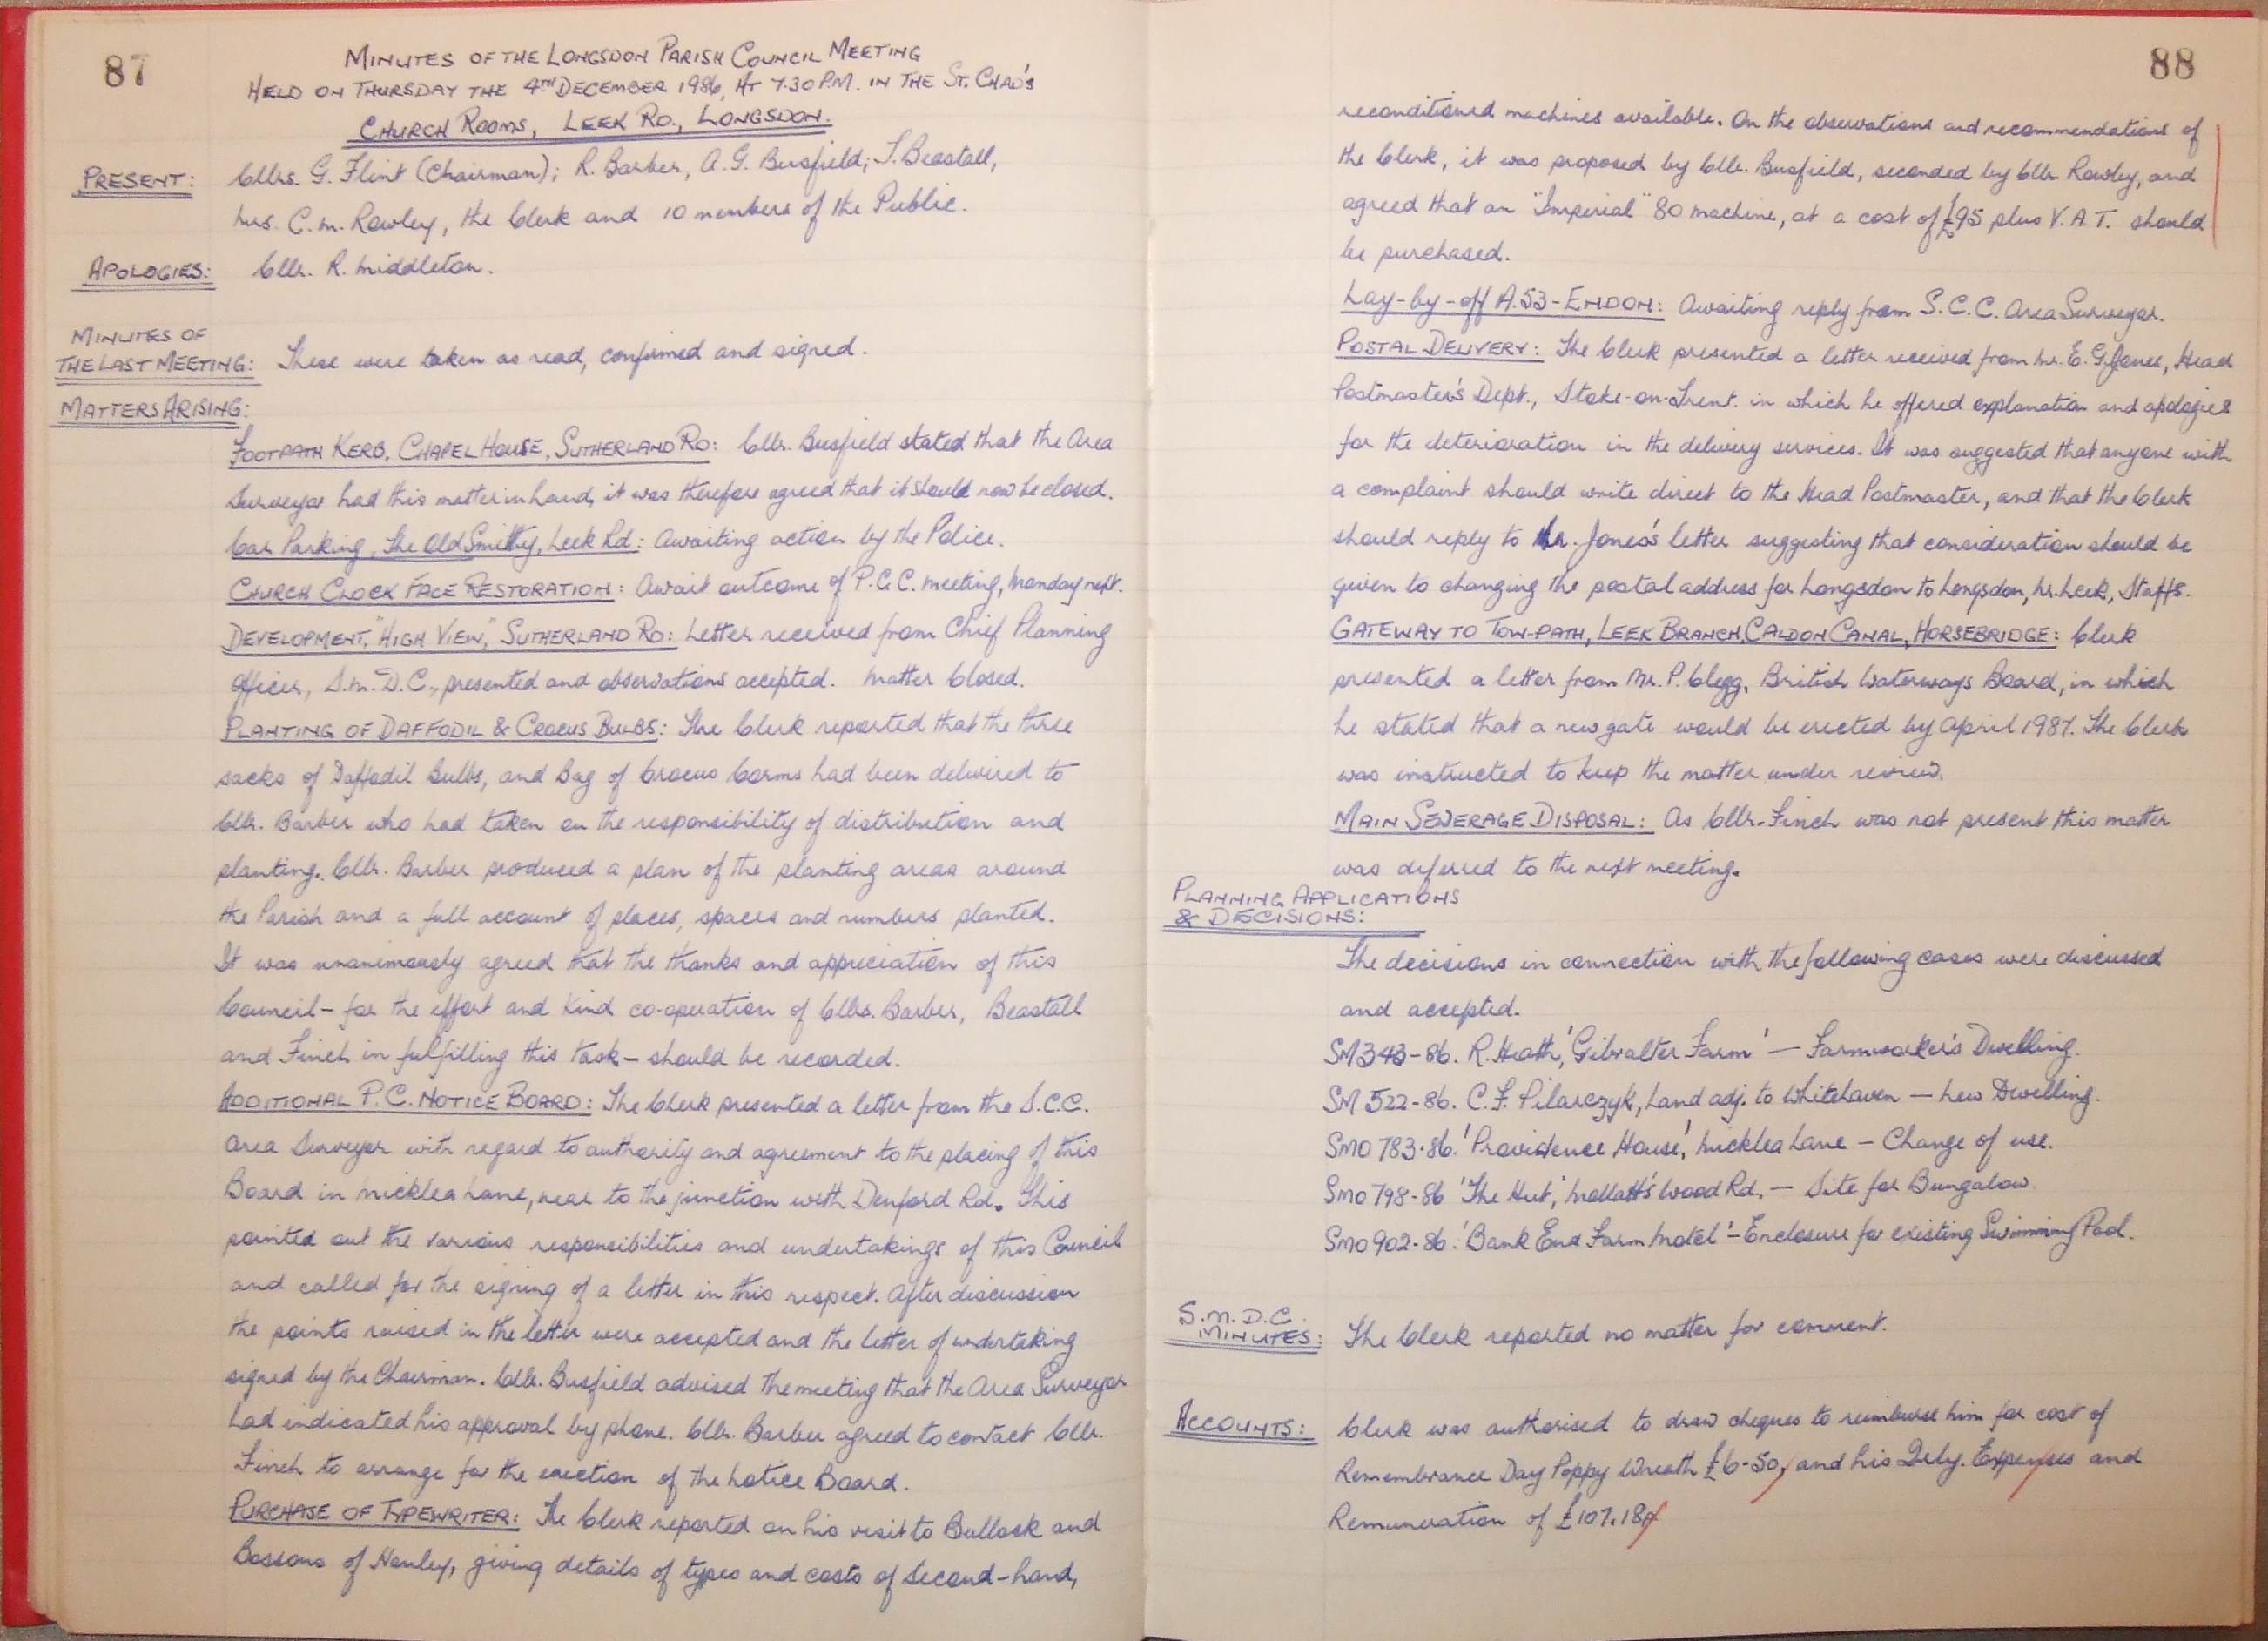 87
MINUTES OF THE LONGSDON PARISH COUNCIL MEETING
HELD ON THURSDAY THE 4TH DECEMBER 1986, AT 7.30 P.M. IN THE ST. CHAD'S
CHURCH ROOMS, LEEK RD., LONGSDON.
PRESENT: Cllrs. G. Flint (Chairman); R. Barber, A. G. Busfield; T. Beastall,
Mrs. C. M. Rowley, the Clerk and 10 members of the Public.
APOLOGIES: Cllr. R. Middleton.
MINUTES OF
THE LAST MEETING: These were taken as read, confirmed and signed.
MATTERS ARISING:
FOOTPATH KERB, CHAPEL HOUSE, SUTHERLAND RD: Cllr. Busfield stated that the Area
Surveyor had this matter in hand, it was therefore agreed that it should now be closed.
Car Parking, The Old Smithy, Leek Rd: Awaiting action by the Police.
CHURCH CLOCK FACE RESTORATION: Await outcome of P.C.C. meeting, Monday next.
DEVELOPMENT, "HIGH VIEW," SUTHERLAND RD: Letter received from Chief Planning
Officer, S.M.D.C., presented and observations accepted. Matter Closed.
PLANTING OF DAFFODIL & CROCUS BULBS: The Clerk reported that the three
sacks of Daffodil Bulbs, and Bag of Crocus Corms had been delivered to
Cllr. Barber who had taken on the responsibility of distribution and
planting. Cllr. Barber produced a plan of the planting areas around
the Parish and a full account of places, spaces and numbers planted.
It was unanimously agreed that the thanks and appreciation of this
Council – for the effort and kind co-operation of Cllrs. Barber, Beastall
and Finch in fulfilling this task – should be recorded.
ADDITIONAL P.C. NOTICE BOARD: The Clerk presented a letter from the S.C.C.
Area Surveyor with regard to authority and agreement to the placing of this
Board in Micklea Lane, near to the junction with Denford Rd. This
pointed out the various responsibilities and undertakings of this Council
and called for the signing of a letter in this respect. After discussion
the points raised in the letter were accepted and the letter of undertaking
signed by the Chairman. Cllr. Busfield advised the meeting that the Area Surveyor
had indicated his approval by phone. Cllr. Barber agreed to contact Cllr.
Finch to arrange for the erection of the Notice Board.
PURCHASE OF TYPEWRITER: The Clerk reported on his visit to Bullock and
Bossons of Hanley, giving details of types and costs of second-hand,
88
reconditioned machines available. On the observations and recommendations of
the Clerk, it was proposed by Cllr. Busfield, seconded by Cllr. Rowley, and
agreed that an "Imperial" 80 machine, at a cost of £95 plus V.A.T. should
be purchased.
Lay-by-off A.53 - ENDON: Awaiting reply from S.C.C. Area Surveyor.
POSTAL DELIVERY: The Clerk presented a letter received from Mr. E. G. Jones, Head
Postmaster's Dept., Stoke-on-Trent. in which he offered explanation and apologies
for the deterioration in the delivery services. It was suggested that anyone with
a complaint should write direct to the Head Postmaster, and that the Clerk
should reply to Mr. Jones's letter suggesting that consideration should be
given to changing the postal address for Longsdon to Longsdon, Nr. Leek, Staffs.
GATEWAY TO TOW-PATH, LEEK BRANCH, CALDON CANAL, HORSEBRIDGE: Clerk
presented a letter from Mr. P. Clegg, British Waterways Board, in which
he stated that a new gate would be erected by April 1987. The Clerk
was instructed to keep the matter under review.
MAIN SEWERAGE DISPOSAL: As Cllr. Finch was not present this matter
was deferred to the next meeting.
PLANNING APPLICATIONS
& DECISIONS:
The decisions in connection with the following cases were discussed
and accepted.
SM 343-86. R. Heath, 'Gibralter Farm' — Farmworker's Dwelling.
SM 522-86. C. F. Pilarczyk, Land adj. to Whitehaven — New Dwelling.
SMO 783-86. 'Providence House', Micklea Lane – Change of use.
SMO 798-86 'The Hut', Mollatt's Wood Rd. — Site for Bungalow.
SMO 902-86. 'Bank End Farm Motel' – Enclosure for existing Swimming Pool.
S.M.D.C.
MINUTES: The Clerk reported no matter for comment.
ACCOUNTS: Clerk was authorised to draw cheques to reimburse him for cost of
Remembrance Day Poppy Wreath £6-50, and his Qrly. Expenses and
Remuneration of £107.18p